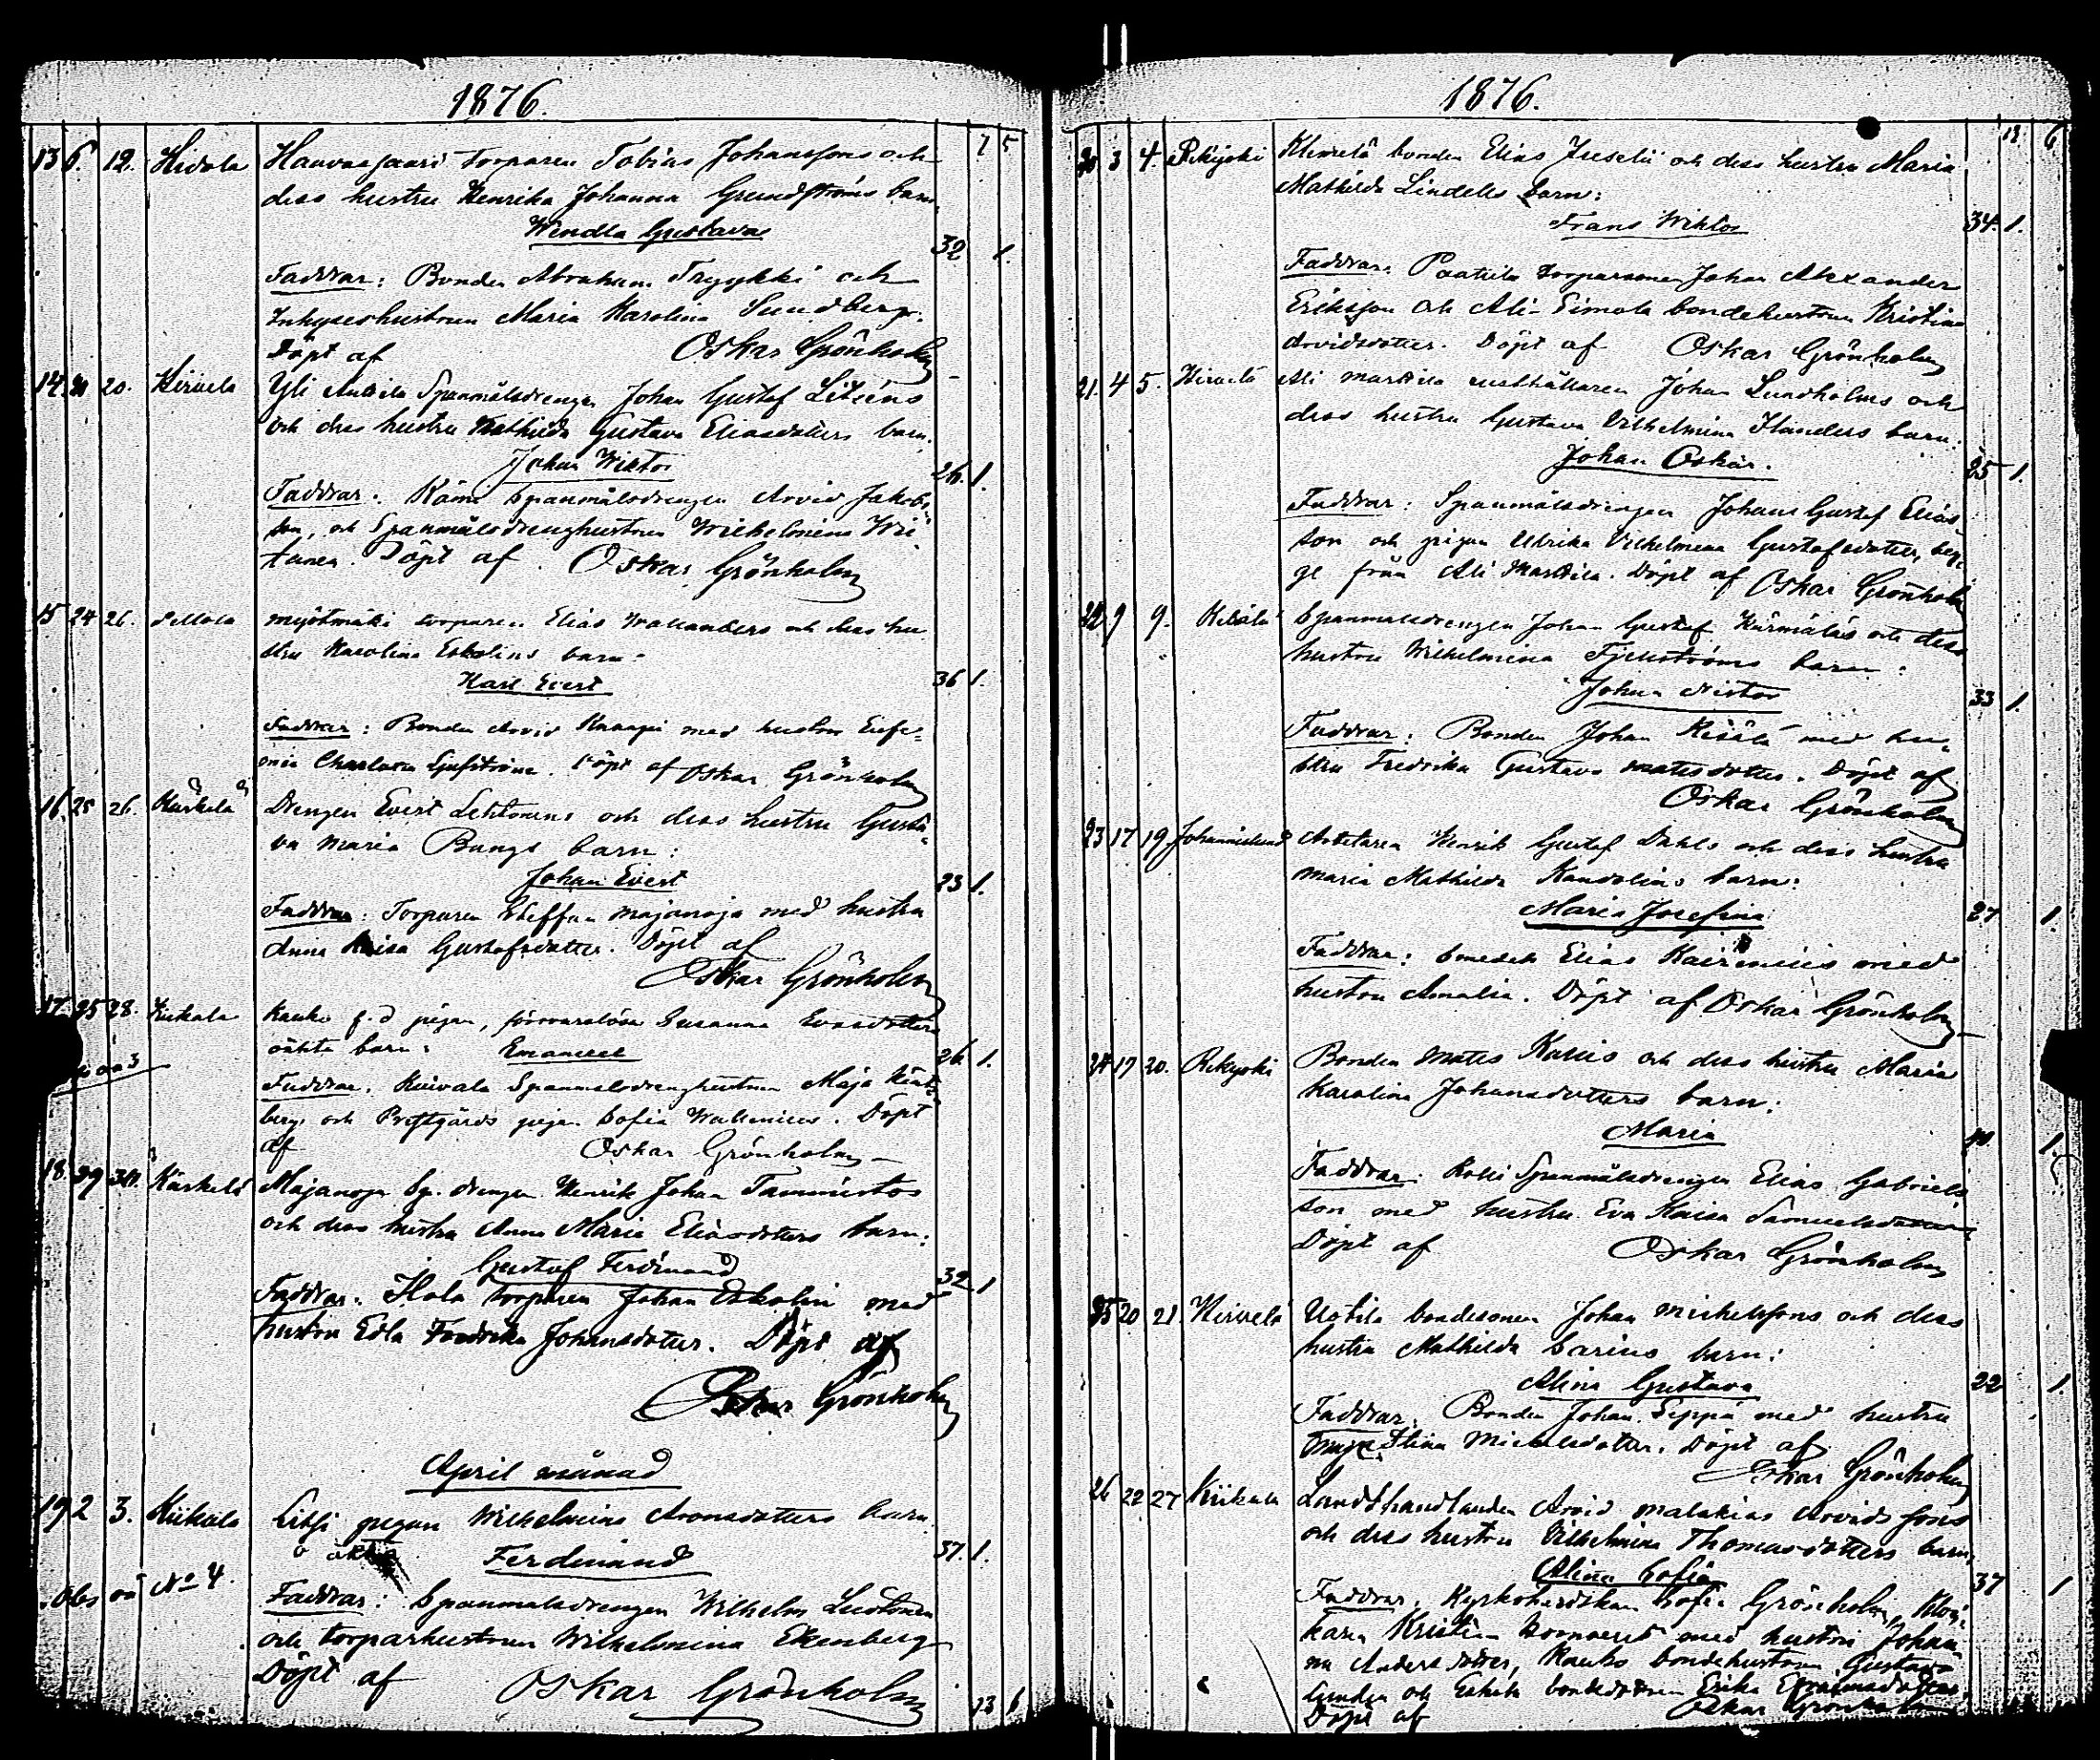 1876.
7 5
13 6. 12. Hidola Hauvansaari torparen Tobias Johanssons och
dess hustru Henrika Johanna Grundströms barn
Wendla Gustava
32 1.
Faddrar: Bonden Abraham Tryykki och
Inhyseshustrun Maria Karolina Sundberg.
Döpt af Oskar Grönholm
14. 20. Hirvelä Yli Anttila Spanmålsdrengen Johan Gustaf Liténs
och dess hustru Mathilda Gustava Eliasdotters barn.
Johan Wiktor
26. 1.
Faddrar: Rämi Spanmålsdrengen Arvid Jakobs-
son, och Spanmålsdrenghustrun Wilhelmina Wii-
tanen. Döpt af Oskar Grönholm
15 24 26. myötmäki torparen Elias Wallanders och dess hu
stru Karolina Eskolins barn
Karl Evert
36 1.
Faddrar: Bonden Arvid med hustru Eufe-
mia Charlotta. Döpt af Oskar Grönholm
16. 25 26. Kärkelä Drengen Evert Lehtonens och dess hustru Gusta-
va Maria Bungs barn:
Johan Evert
23 1.
Faddrar: Torparen Steffan majanoja med hustru
Anna Kaisa Gustafsdotter. Döpt af
Oskar Grönholm
17. 25 28. Kiikala Kauko f.d pigan, försvarslösa Susanna Evasdotters
oäkta barn: Emanuel
26. 1.
oä 3
Faddrar: Kuivala Spanmålsdrenghustrun Maja
berg, och Prestgårds pigan Sofia Wallenius. Döpt
af Oskar Grönholm
18. 29 30. Kärkelä Majanoja Sp. drengen Henrik Johan Tammistos
och dess hustru Anna Maria Eliasdotters barn:
Gustaf Ferdinand
32 1
Faddrar: Hola torparen Johan Eskolin med
hustru Edla Fredrika Johansdotter. Döpt af
Oskar Grönholm
April månad
19 2 3. Kiikala pigan Wilhelmina Aronsdotters barn
oäkta Ferdinand
37. 1.
oä No 4.
Faddrar: Spanmålsdrengen Wilhelm Lustonen
och torparhustrun Wilhelmina Ekenberg
Döpt af Oskar Grönholm
13 6
1876.
13 6
20 3 4. Rekijoki bonden Elias Juselii och dess hustru Maria
Mathilda Lindells barn:
Frans Wiktor
34. 1.
Faddrar: Paatila torparsonen Johan Alexander
Eriksson och Ali-Eimola bondehustrun Kristina
Arvidsdotter. Döpt af Oskar Grönholm
21. 4 5. Hirvelä Ali marttila Johan Lundholms och
dess hustru Gustava Vilhelmina Flanders barn.
Johan Oskar.
25 1.
Faddrar: Spanmålsdrengen Johan Gustaf Elias
son och pigan Ulrika Vilhelmina Gustafsdotter, beg-
ge från Ali Marttila. Döpt af Oskar Grönholm
22 9 9. Spanmålsdrengen Johan Gustaf Kärmälös och dess
hustru Wilhelmina barn:
Johan Nestor
33 1.
Faddrar: Bonden Johan med hu-
stru Fredrika Gustava matsdotter. Döpt af
Oskar Grönholm
23 17 19 Johannislund Arbetaren Henrik Gustaf Dahls och dess hustru
Maria Mathilda Kandolins barn:
Maria Josefina
27 1.
Faddrar: Smeden Elias med
hustru Amalia. Döpt af Oskar Grönholm
24 17 20. Rekijoki Bonden Mats Karis och dess hustru Maria
Karolina Johansdotters barn:
Maria
1.
Faddrar: Spanmålsdrengen Elias Gabriels
son med hustru Eva Kaisa Samuelsdotter
Döpt af Oskar Grönholm
25 20 21. Hirvelä Uotila bondesonen Johan Michelssons och dess
hustru Mathilda Sarins barn:
Alina Gustava
22 1.
Faddrar: Bonden Johan Seppä med hustru
Maja Stina Michelsdotter. Döpt af
Oskar Grönholm
26 22 27 Kiikala Landthandlanden Arvid Malakias Arvidssons
och dess hustru Vilhelmina Thomasdotters barn,
Alina Sofia
37 1
Faddrar: Kyrkoherdskan Sofia Grönholm, Kloc-
karen Kristian med hustru Johan-
na Andersdotter, Kauko bondehustrun Gustava
och bondedottren Erika Efraimsdotter.
Döpt af Oskar Grönholm